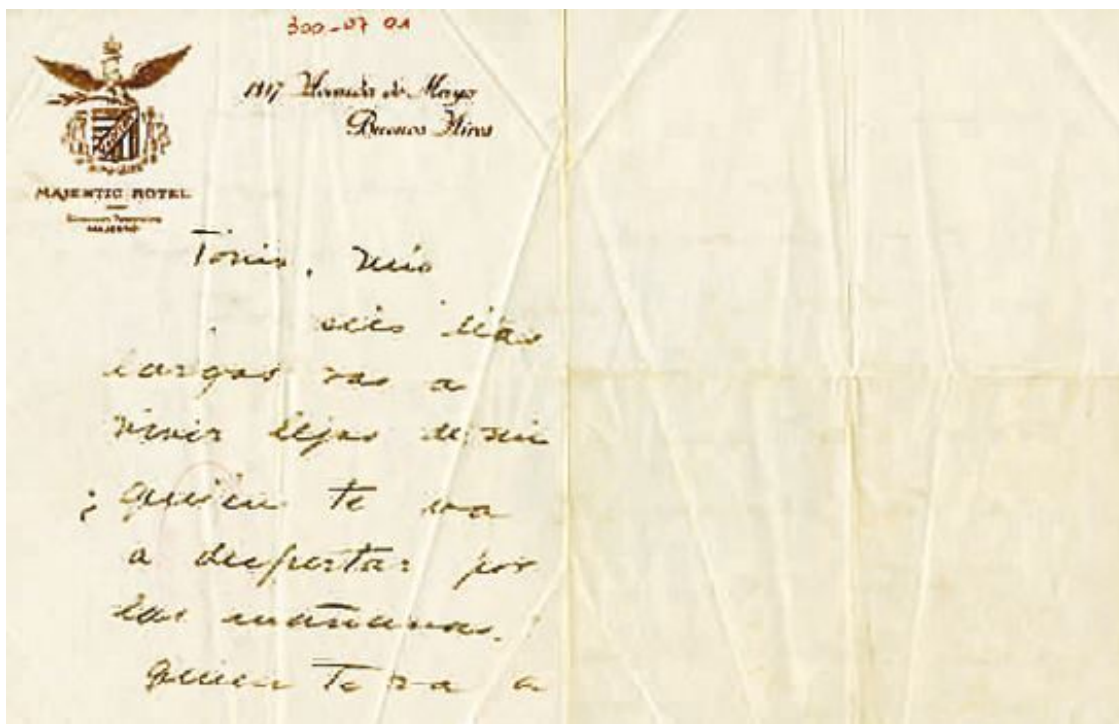 300-07 01
1317 Avenida de Mayo
Buenos Aires
MAJESTIC HOTEL
MAJESTIC
Tonio, mio
seis dias
largos vas a
vivir lejos de mi
¿ quien te va
a despertar por
las mañanas.
quien te va a